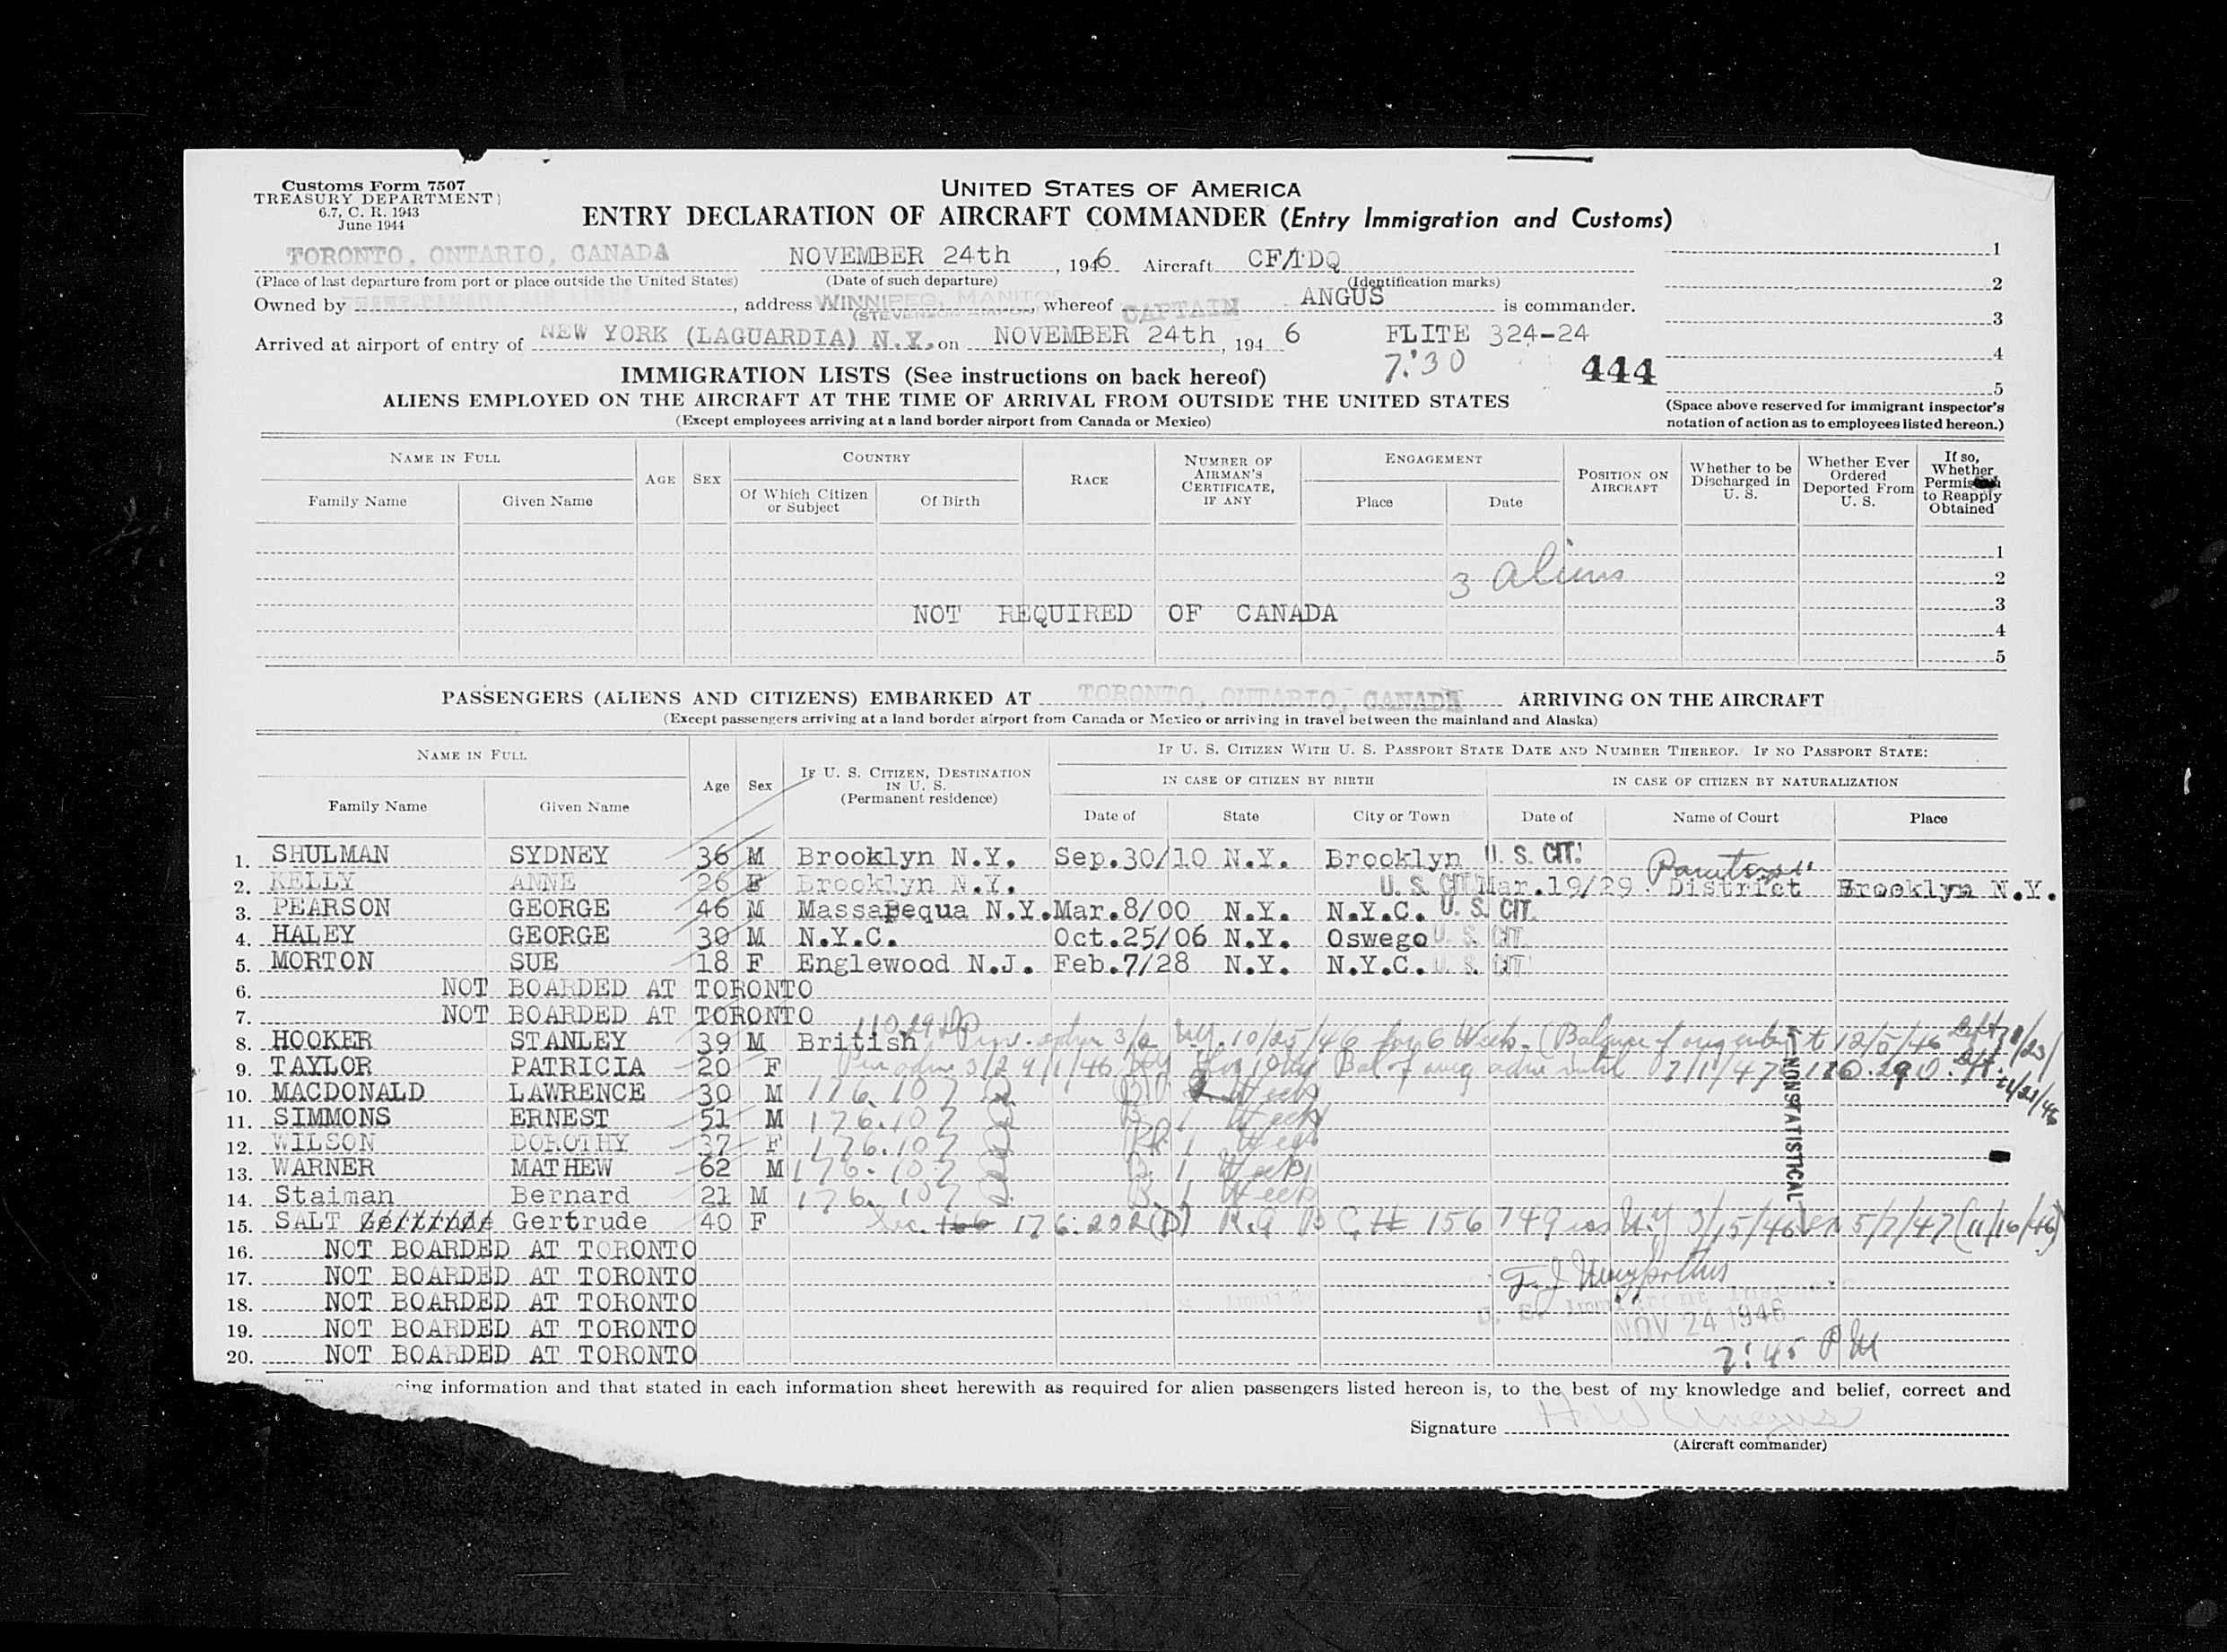 Customs Form 7507
TREASURY DEPARTMENT)
6.7, C. R. 1943
June 1944
UNITED STATES OF AMERICA
ENTRY DECLARATION OF AIRCRAFT COMMANDER (Entry Immigration and Customs)
TORONTO, ONTARIO, CANADA NOVEMBER 24th , 1946 Aircraft CF/TDQ 1
(Place of last departure from port or place outside the United States) (Date of such departure) (Identification marks) 2
Owned by , address WINNIPEG, MANITOBA , whereof CAPTAIN ANGUS is commander.
3
Arrived at airport of entry of NEW YORK (LAGUARDIA) N.Y. on NOVEMBER 24th , 194 6 FLITE 324-24
4
7:30 444
5
IMMIGRATION LISTS (See instructions on back hereof)
ALIENS EMPLOYED ON THE AIRCRAFT AT THE TIME OF ARRIVAL FROM OUTSIDE THE UNITED STATES
(Except employees arriving at a land border airport from Canada or Mexico)
(Space above reserved for immigrant inspector's
notation of action as to employees listed hereon.)
NAME IN FULL AGE SEX COUNTRY RACE NUMBER OF AIRMAN'S CERTIFICATE, IF ANY ENGAGEMENT POSITION ON AIRCRAFT Whether to be Discharged in U. S. Whether Ever Ordered Deported From U. S. If so, Whether to Reapply Obtained
Family Name Given Name Of Which Citizen or Subject Of Birth Place Date
1
3 aliens 2
NOT REQUIRED OF CANADA 3
4
5
PASSENGERS (ALIENS AND CITIZENS) EMBARKED AT TORONTO, ONTARIO, CANADA ARRIVING ON THE AIRCRAFT
(Except passengers arriving at a land border airport from Canada or Mexico or arriving in travel between the mainland and Alaska)
NAME IN FULL Age Sex IF U. S. CITIZEN, DESTINATION IN U. S. (Permanent residence) IF U. S. CITIZEN WITH U. S. PASSPORT STATE DATE AND NUMBER THEREOF. IF NO PASSPORT STATE:
IN CASE OF CITIZEN BY BIRTH IN CASE OF CITIZEN BY NATURALIZATION
Family Name Given Name Date of State City or Town Date of Name of Court Place
1. SHULMAN SYDNEY 36 M Brooklyn N.Y. Sep.30/10 N.Y. Brooklyn U. S. CIT.
2. KELLY ANNE 26 F Brooklyn N.Y. U. S. CIT. Mar.19/29 District Brooklyn N.Y.
3. PEARSON GEORGE 46 M Massapequa N.Y. Mar.8/00 N.Y. N.Y.C. U. S. CIT.
4. HALEY GEORGE 30 M N.Y.C. Oct.25/06 N.Y. Oswego U. S. CIT.
5. MORTON SUE 18 F Englewood N.J. Feb.7/28 N.Y. N.Y.C. U. S. CIT.
6. NOT BOARDED AT TORONTO
7. NOT BOARDED AT TORONTO
8. HOOKER STANLEY 39 M British 3/2 N.Y. 10/25/46 for 6 Weeks (Balance of to 12/5/46
9. TAYLOR PATRICIA 20 F 3/2 9/1/46 Bal of
10. MACDONALD LAWRENCE 30 M 176.107 Week
11. SIMMONS ERNEST 51 M 176.107 B 1 Week
12. WILSON DOROTHY 37 F 176.107 1 Week
13. WARNER MATHEW 62 M 176.107 B. 1 Week
14. Staiman Bernard 21 M 176.107 B. 1 Week
15. SALT Gertrude Gertrude 40 F Sec. 166 176.202(D) 156749 iss N.Y 3/15/46 5/7/47 (11/16/46)
NONSTATISTICAL
16. NOT BOARDED AT TORONTO
17. NOT BOARDED AT TORONTO
18. NOT BOARDED AT TORONTO
19. NOT BOARDED AT TORONTO
NOV 24 1946
20. NOT BOARDED AT TORONTO
7:45 PM
information and that stated in each information sheet herewith as required for alien passengers listed hereon is, to the best of my knowledge and belief, correct and
Signature H W Angus
(Aircraft commander)